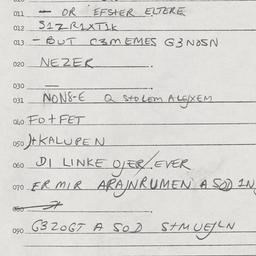 011 — OR EFSTER ELTERE
012 S1ZR1XT1k
013 - BUT C3MEMES G3NOSN
020 NEZER
030 —
031 NON8-E Q StOLEM ALEJXEM
040 FO+FET
050 KALUPEN
060 DI LINKE OJER/EVER
070 ER MIR ARAJNRUMEN A SOD IN
080
090 G3ZOGT A SOD